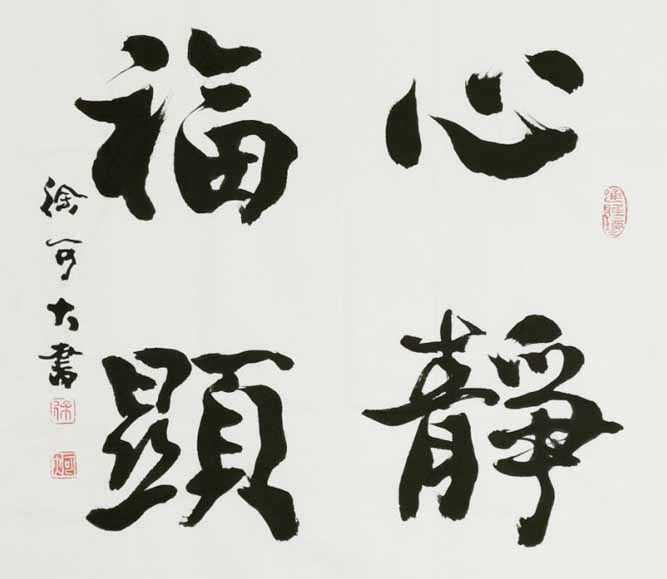 心靜
福顯
徐可大書